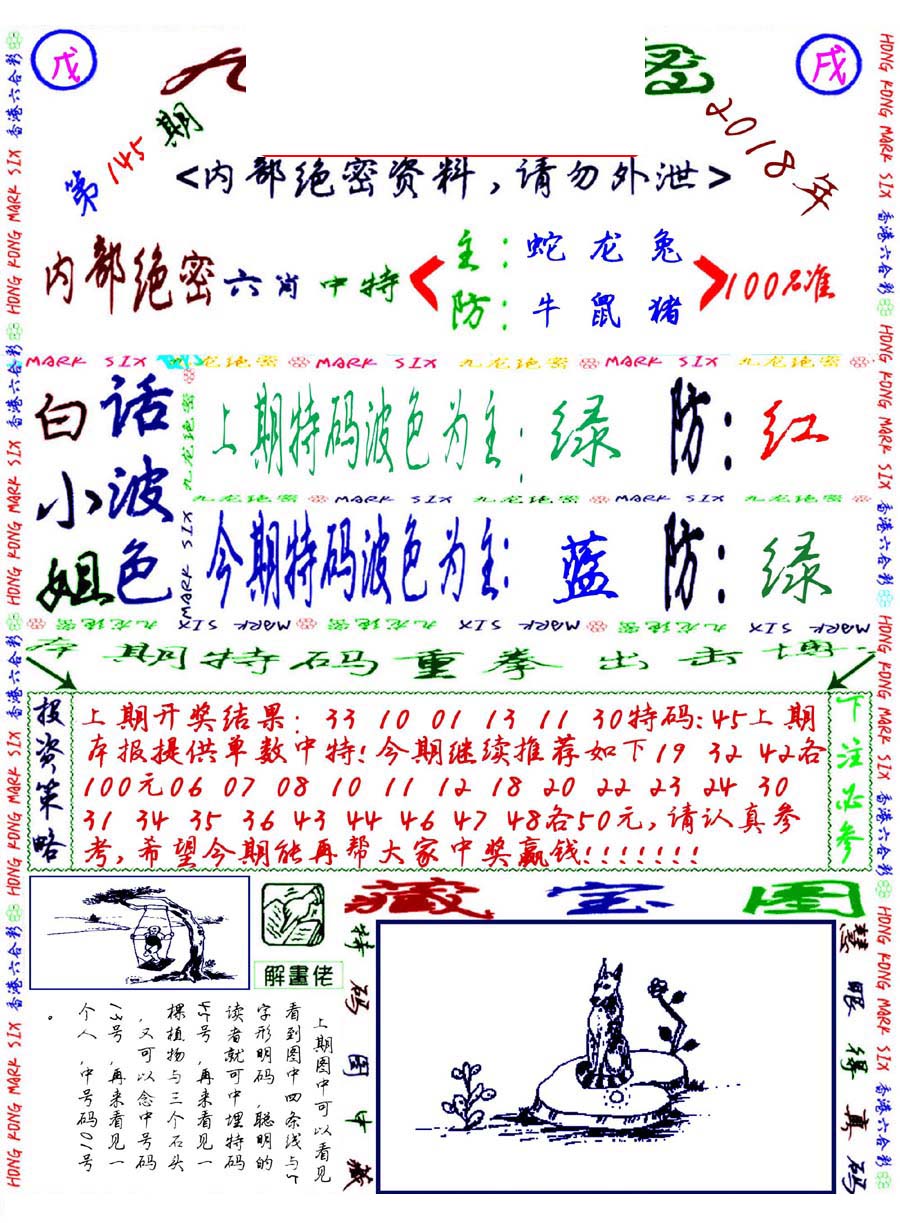 戊
戌
第145期
2018年
<内部绝密资料,请勿外泄>
内部绝密六肖中特
主:蛇龙兔
防:牛鼠猪
100%准
MARK SIX 九龙绝密 MARK SIX 九龙绝密 MARK SIX 九龙绝密
白话小波姐色
上期特码波色为主:绿 防:红
九龙绝密 MARK SIX 九龙绝密 MARK SIX 九龙绝密
今期特码波色为主:蓝 防:绿
九龙绝密 MARK SIX 九龙绝密 MARK SIX 九龙绝密 MARK SIX
期特码重拳出击
投资策略
上期开奖结果:33 10 01 13 11 30特码:45上期
本报提供单数中特!今期继续推荐如下19 32 42各
100元06 07 08 10 11 12 18 20 22 23 24 30
31 34 35 36 43 44 46 47 48各50元,请认真参
考,希望今期能再帮大家中奖赢钱!!!!!!!
下注必参
解畫佬
藏宝图
上期图中可以看见
看到图中四条线与7
字形明码,聪明的
读者就可中埋特码
45号,再来看见一
棵植物与三个石头
,又可以念中号码
13号,再来看见一
个人,中号码01号
。
特码图中藏
慧眼得真码
HONG KONG MARK SIX 香港六合彩 HONG KONG MARK SIX 香港六合彩 HONG KONG MARK SIX 香港六合彩 HONG KONG MARK SIX 香港六合彩
HONG KONG MARK SIX 香港六合彩 HONG KONG MARK SIX 香港六合彩 HONG KONG MARK SIX 香港六合彩 HONG KONG MARK SIX 香港六合彩